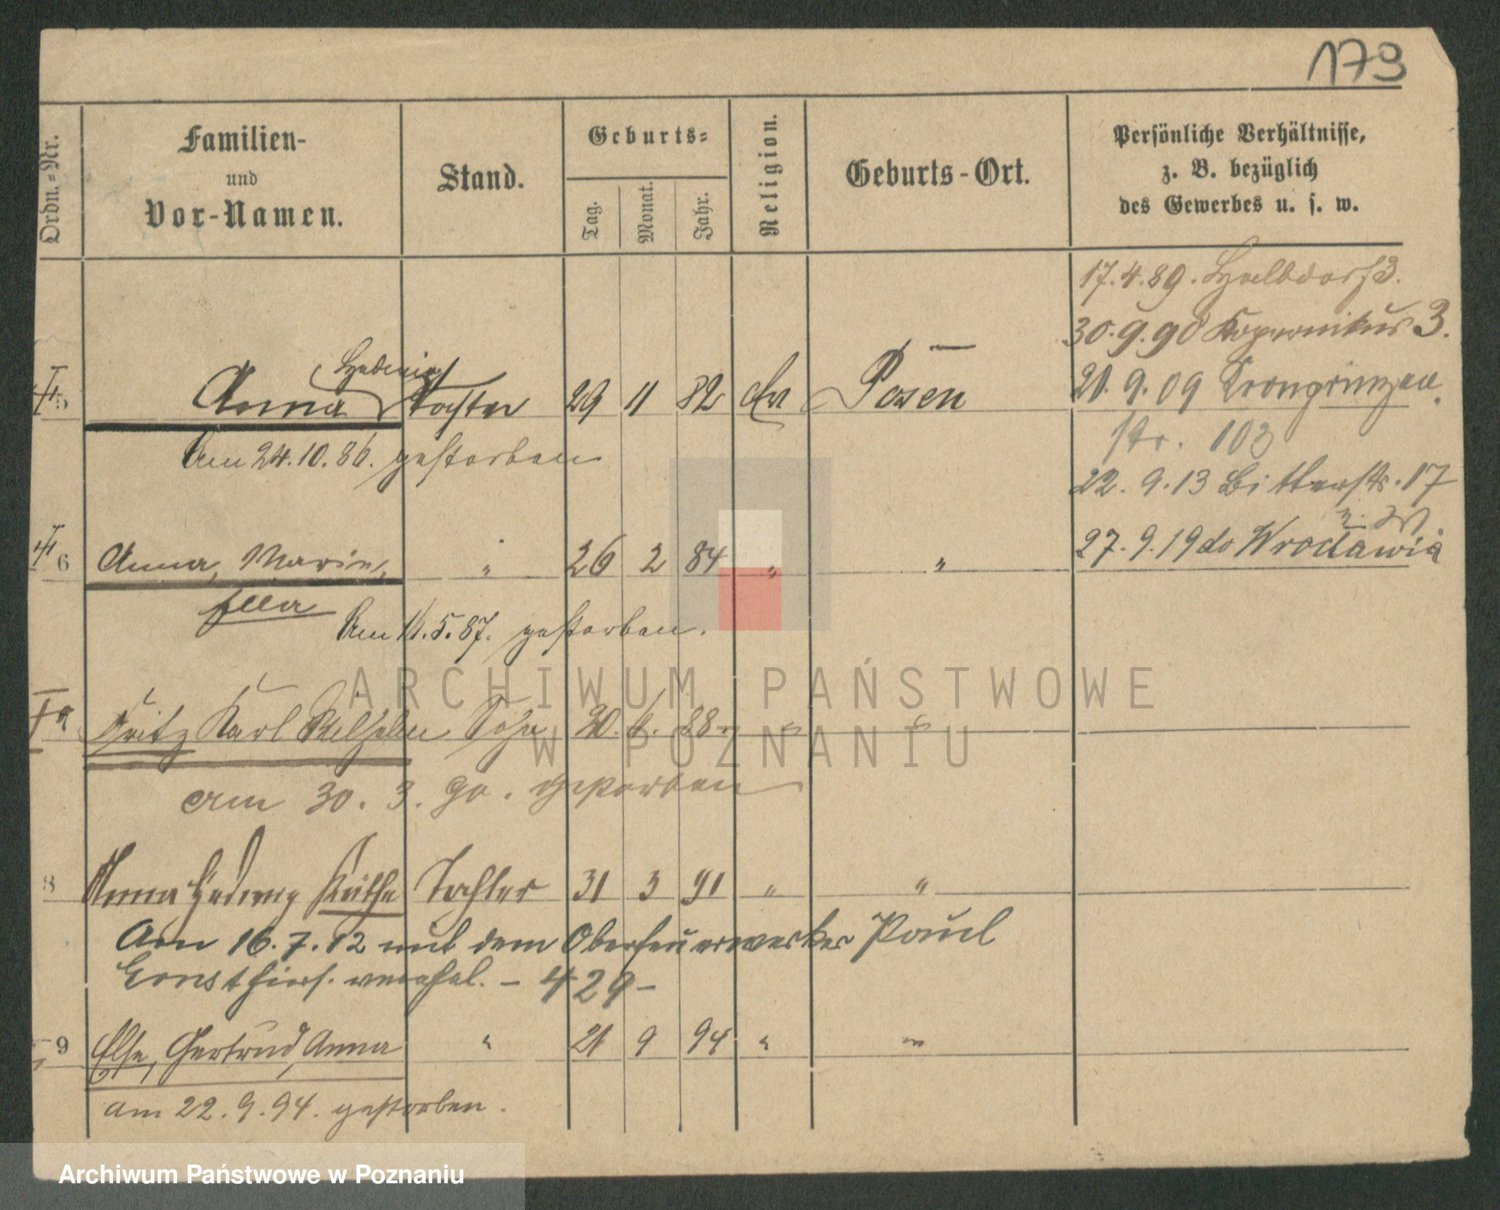 173
Ordn.-Nr.
Familien-
und
Vor-Namen.
Stand.
Geburts-
Tag.
Monat.
Jahr.
Religion.
Geburts-Ort.
Persönliche Verhältnisse,
z. B. bezüglich
des Gewerbes u. s. w.
17.4.89. Halbdorf 3.
30.9.90 Kopernikus 3.
Hedwig
5 Anna Tochter 29 11 82 Posen
21.9.09 Kronprinzen
str. 103
Am 24.10.86. gestorben
22.9.13 Bitterstr. 17
6 Anna, Marie, " 26 2 84 " "
27.9.19 do Wrocławia
Ella
Am 11.5.87. gestorben.
Fritz Karl Wilhelm Sohn 20. 4. 88. " "
am 30.3.90. gestorben
8 Anna Hedwig Käthe Tochter 31 3 91 " "
Am 16.7.12 mit dem Oberfeuerwerker Paul
Ernst hiers. verehel. - 429 -
9 Else, Gertrud, Anna " 21 9 94 " "
am 22.9.94. gestorben.
ARCHIWUM PAŃSTWOWE
W POZNANIU
Archiwum Państwowe w Poznaniu